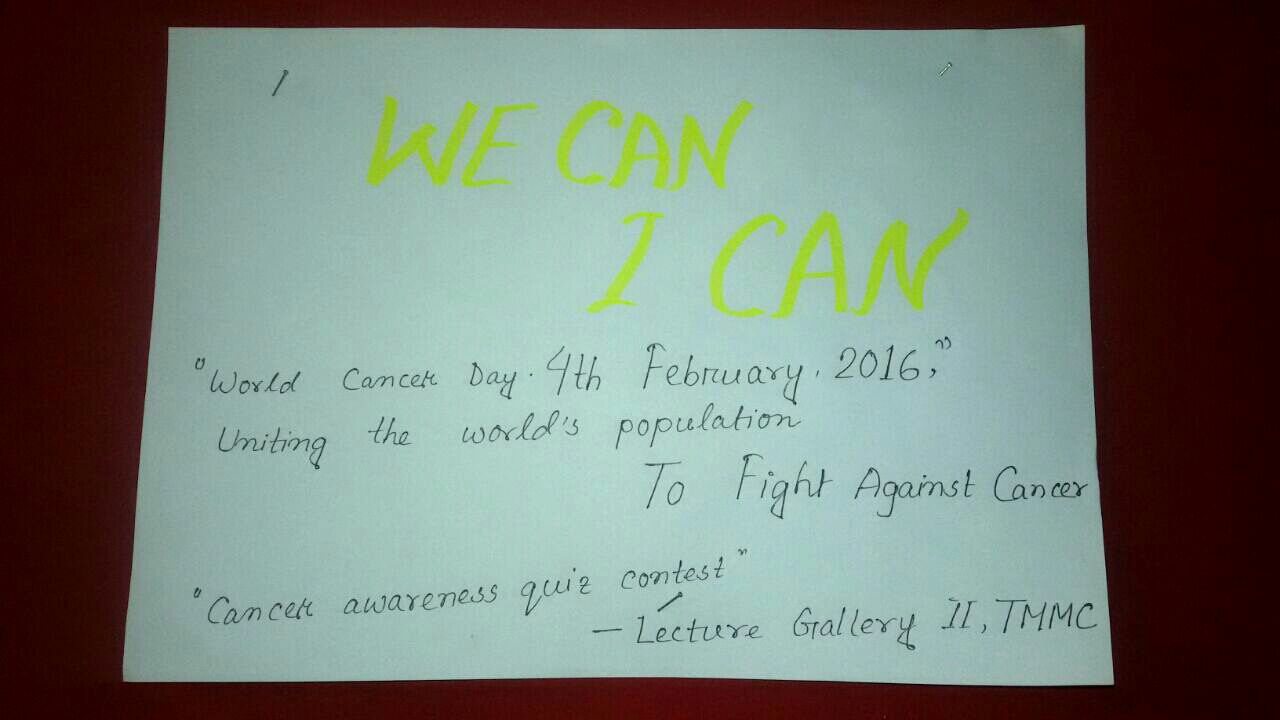 WE CAN
I CAN
"World Cancer Day. 4th February. 2016,"
Uniting the world's population
To Fight Against Cancer
"Cancer awareness quiz contest"
— Lecture Gallery II, TMMC